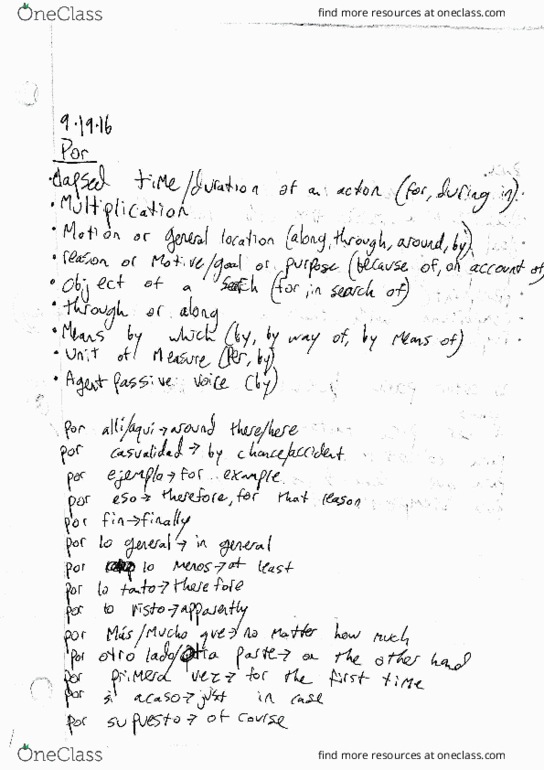 OneClass
find more resources at oneclass.com
9.19.16
Por
• elapsed time/duration of an action (for, during in)
• Multiplication
• Motion or general location (along, through, around, by)
• reason or Motive/goal or purpose (because of, on account of)
• Object of a search (for, in search of)
• through or along
• Means by which (by, by way of, by means of)
• Unit of Measure (per, by)
• Agent passive voice (by)
por alli/aquí→around there/here
por casualidad→by chance/accident
por ejemplo→for example
por eso→therefore, for that reason
por fin→finally
por lo general→in general
por lo menos→at least
por lo tanto→therefore
por lo visto→apparently
por Más/Mucho que→no matter how much
por otro lado/otra parte→on the other hand
por primera vez→for the first time
por si acaso→just in case
por supuesto→of course
OneClass
find more resources at oneclass.com